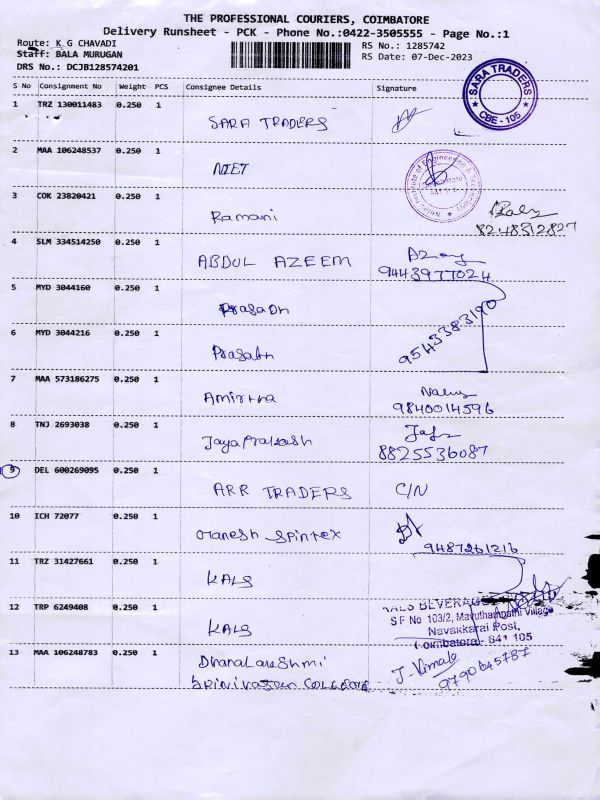 THE PROFESSIONAL COURIERS, COIMBATORE
Delivery Runsheet - PCK - Phone No.:0422-3505555 - Page No.:1
Route: K G CHAVADI
RS No.: 1285742
Staff: BALA MURUGAN
RS Date: 07-Dec-2023
DRS No.: DCJB128574201
SARA TRADERS
CBE - 105
S No Consignment No Weight PCS Consignee Details Signature
1 TRZ 130011483 0.250 1
SARA TRADERS
2 MAA 106248537 0.250 1
NIET
Nehru Institute of Engineering & Technology
3 COK 23820421 0.250 1
Ramani
8248312827
4 SLM 334514250 0.250 1
ABDUL AZEEM
9443977024
5 MYD 3044160 0.250 1
Prasadh
6 MYD 3044216 0.250 1
Prasath
9543383190
7 MAA 573186275 0.250 1
Amirtha
9840014596
8 TNJ 2693038 0.250 1
Jayaprakash
8825536087
9 DEL 600269095 0.250 1
ARR TRADERS C/N
10 ICH 72077 0.250 1
Ganesh Spintex
9487261216
11 TRZ 31427661 0.250 1
KALS
12 TRP 6249408 0.250 1
KALS
KALS BEVERAGES
S F No 103/2, Mavuthampathi Village
Navakkarai Post,
Coimbatore - 641 105
13 MAA 106248783 0.250 1
Dhanalakshmi
Srinivasan COLLEGE
J. Vimala
9790645787